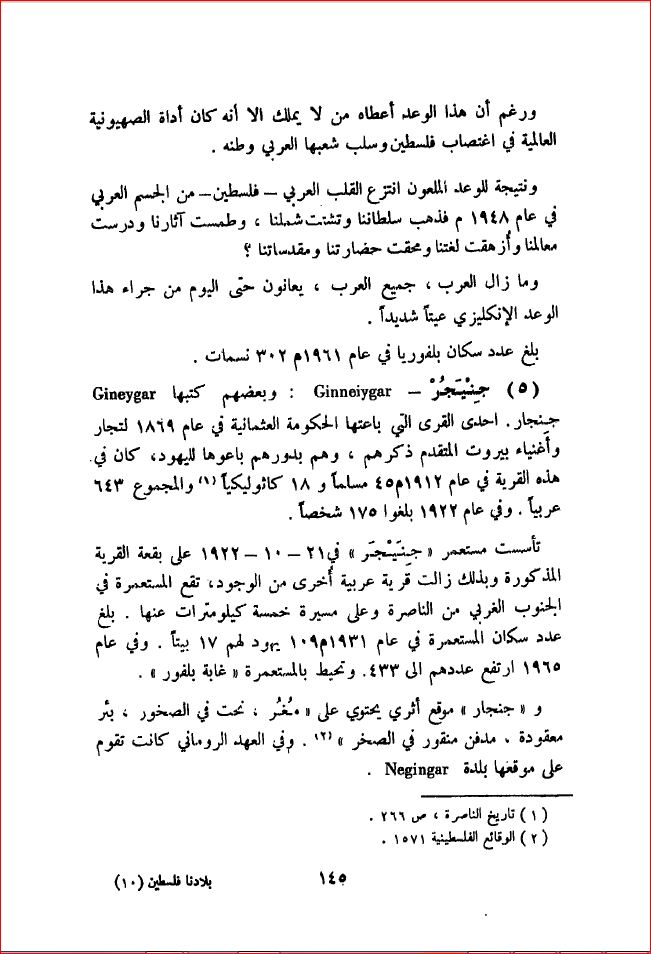 ورغم أن هذا الوعد أعطاه من لا يملك الا أنه كان أداة الصهيونية
العالمية في اغتصاب فلسطين وسلب شعبها العربي وطنه .
ونتيجة للوعد الملعون انتزع القلب العربي – فلسطين – من الجسم العربي
في عام ١٩٤٨ م فذهب سلطاننا وتشتت شملنا ، وطمست آثارنا ودرست
معالمنا وأزهقت لغتنا ومحقت حضارتنا ومقدساتنا ؟
وما زال العرب ، جميع العرب ، يعانون حتى اليوم من جراء هذا
الوعد الإنكليزي عيتاً شديداً .
بلغ عدد سكان بلفوريا في عام ١٩٦١م ٣٠٢ نسمات .
(٥) جِنْيَجُرْ – Ginneiygar : وبعضهم كتبها Gineygar
جِنجار . احدى القرى التي باعتها الحكومة العثمانية في عام ١٨٦٩ لتجار
وأغنياء بيروت المتقدم ذكرهم ، وهم بدورهم باعوها لليهود، كان في
هذه القرية في عام ١٩١٢م٤٥ مسلماً و ١٨ كاثوليكياً (١) والمجموع ٦٤٣
عربياً . وفي عام ١٩٢٢ بلغوا ١٧٥ شخصاً .
تأسست مستعمر « جِنَيْجَر » في٢١ – ١٠ – ١٩٢٢ على بقعة القرية
المذكورة وبذلك زالت قرية عربية أُخرى من الوجود، تقع المستعمرة في
الجنوب الغربي من الناصرة وعلى مسيرة خمسة كيلومترات عنها . بلغ
عدد سكان المستعمرة في عام ١٩٣١م١٠٩ يهود لهم ١٧ بيتاً . وفي عام
١٩٦٥ ارتفع عددهم الى ٤٣٣. وتحيط بالمستعمرة « غابة بلفور » .
و « جنجار » موقع أثري يحتوي على « مُغُر ، نحت في الصخور ، بئر
معقودة ، مدفن منقور في الصخر » (٢) . وفي العهد الروماني كانت تقوم
على موقعها بلدة Negingar .
(١) تاريخ الناصرة ، ص ٢٦٦ .
(٢) الوقائع الفلسطينية ١٥٧١ .
١٤٥
بلادنا فلسطين (١٠)